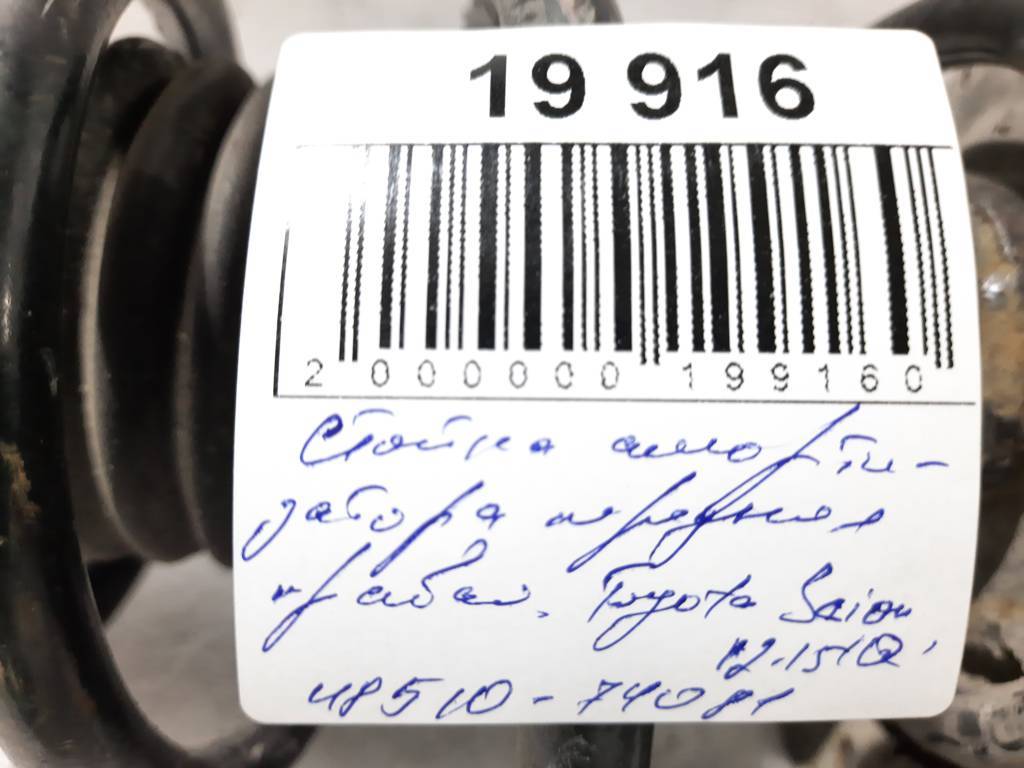 19 916
2 000000 199160
Стойка аморти-
затора передняя
правая. Toyota Scion
12-15 IQ.
48510-74081